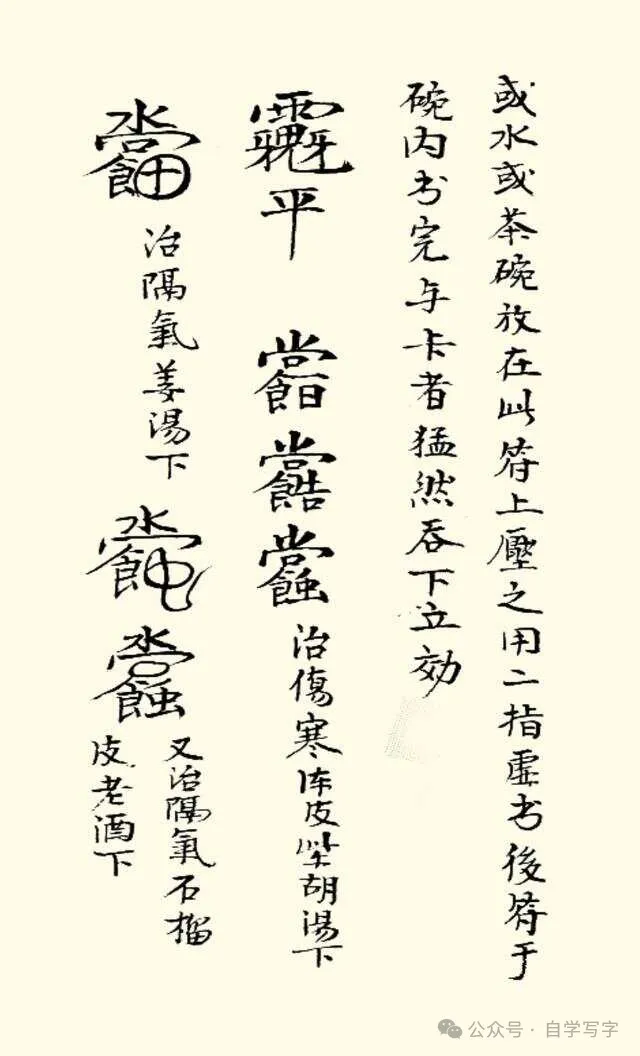 或水或茶碗放在此符上壓之用二指虛书後符于
碗内书完与卡者猛然吞下立効
平
治傷寒陈皮柴胡湯下
治隔氣姜湯下
又治隔氣石榴
皮老酒下
公众号·自学写字